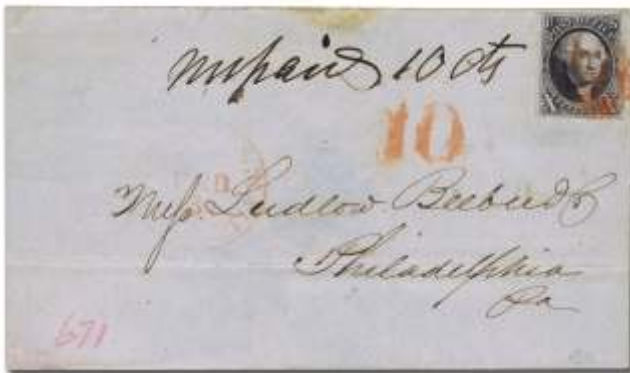 unpaid 10 cts
10
Messrs Ludlow Beebee & Co
Philadelphia
Pa
671